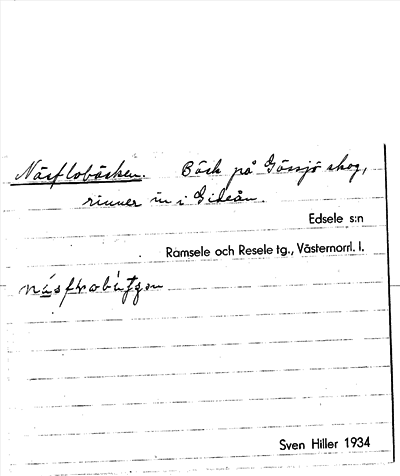 Näsflobäcken. Bäck på Gössjö skog,
rinner in i Gideån.
Edsele s:n
Ramsele och Resele tg., Västernorrl. l.
Sven Hiller 1934